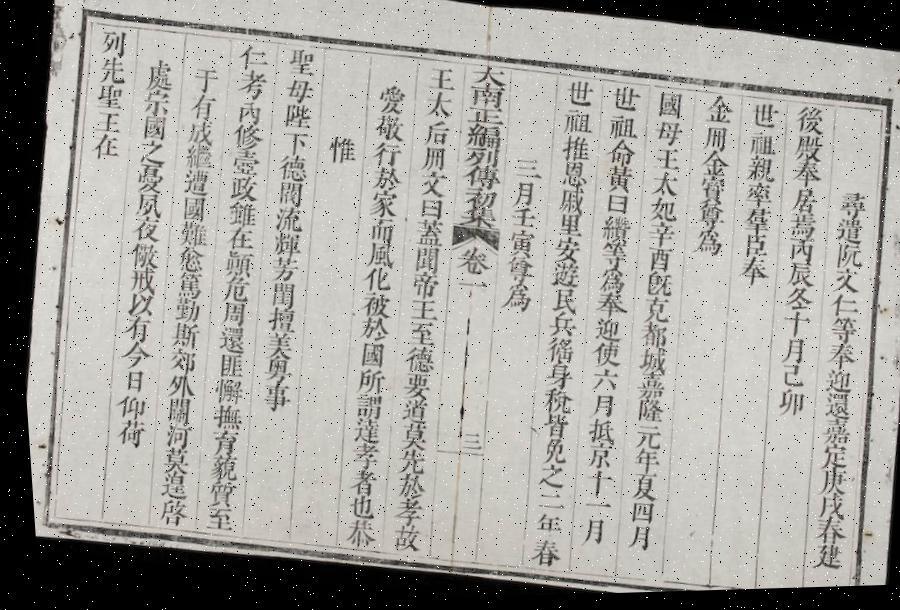 尋遣阮文仁等奉迎還嘉定庚戌春建
後殿奉居焉丙辰冬十月己卯
世祖親率羣臣奉
金冊金寶尊為
國母王太妃辛酉旣克都城嘉隆元年夏四月
世祖命黃曰纘等為奉迎使六月抵京十一月
世祖推恩戚里安遊民兵徭身稅皆免之二年春
三月壬寅尊為
大南正編列傳初集 卷一 三
王太后冊文曰蓋聞帝王至德要道莫先於孝故
愛敬行於家而風化被於國所謂達孝者也恭
惟
聖母陛下德閥流輝芳閨擅美夙事
仁考內修壼政雖在顚危周還匪懈撫育藐質至
于有成繼遭國難愈篤勤斯郊外關河莫遑啓
處宗國之憂夙夜儆戒以有今日仰荷
列先聖王在